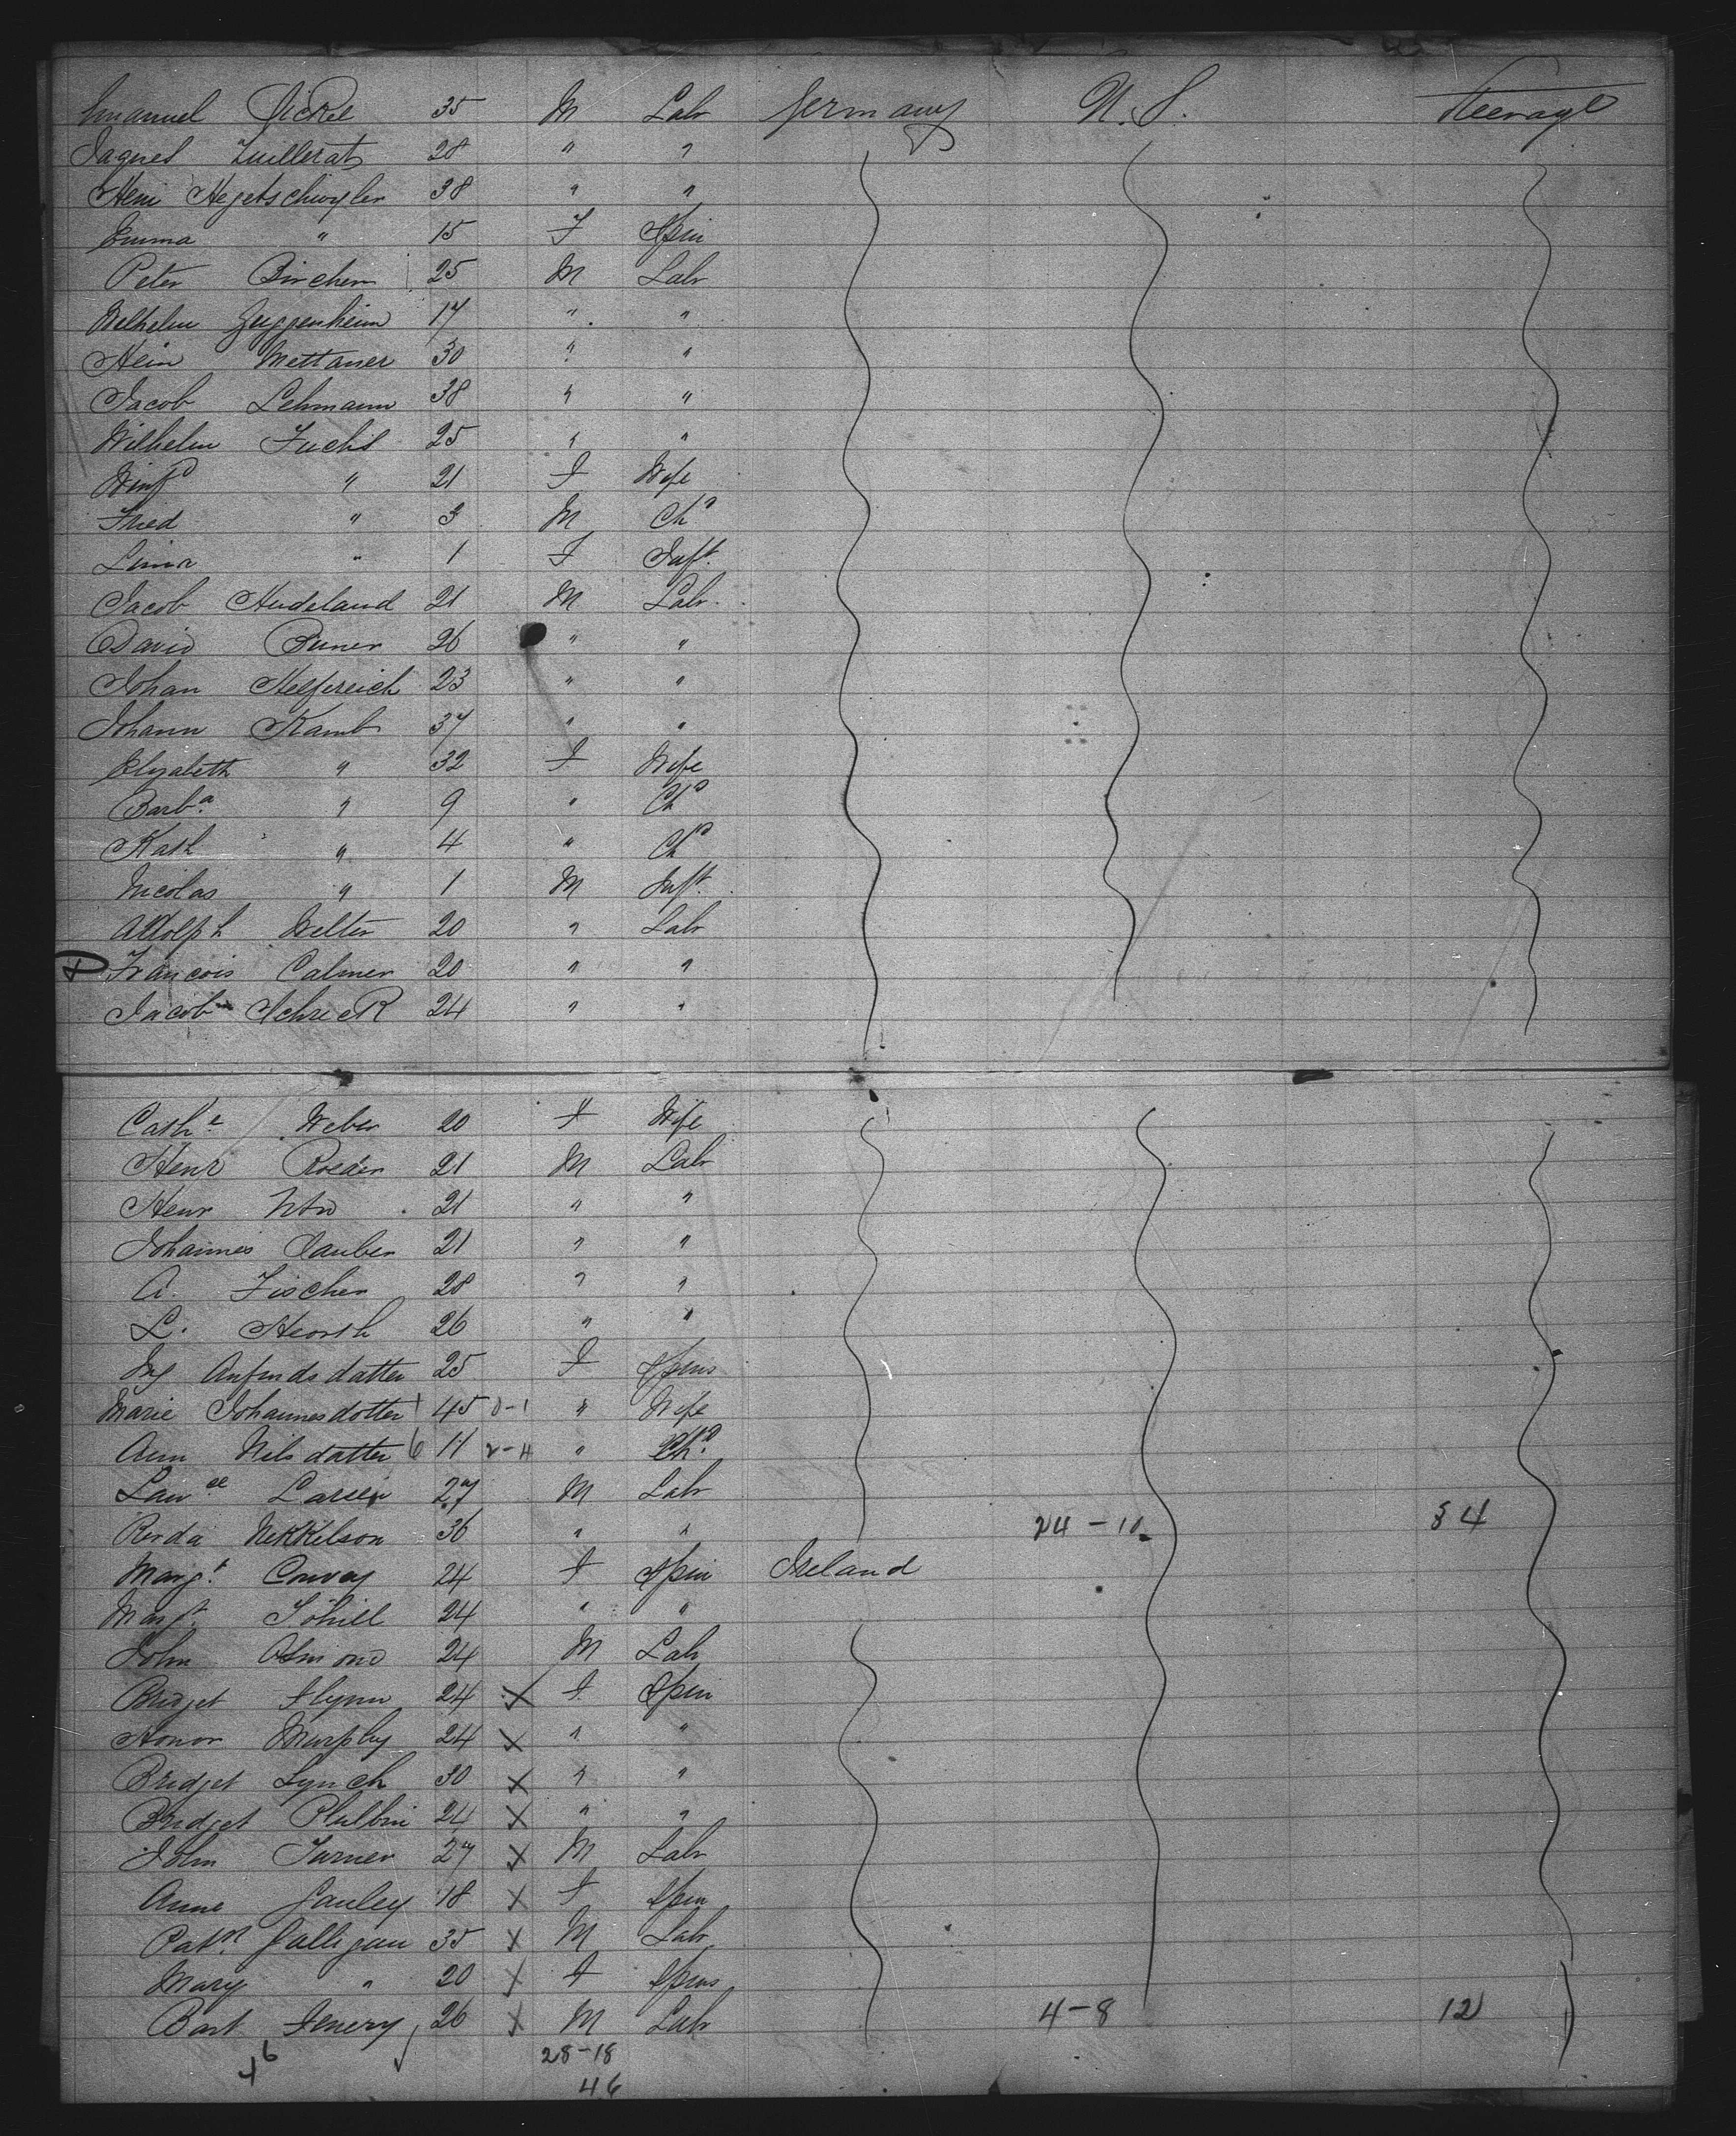 Emanuel Sickel 35 M Labr Germany U.S. Steerage
Jaques Zuillerat 28 " "
Heni 38 " "
Emma " 15 F Spin
Peter Birchem 25 M Labr
Welhelm Guggenheim 17 " "
Hein Mettauer 30 " "
Jacob Lehmann 38 " "
Wilhelm Fuchs 25 " "
" 21 F Wife
Fried " 3 M Chd
Lina " 1 F Inft.
Jacob Hudeland 21 M Labr
David Buner 26 " "
Johan Helfereich 23 " "
Johann Kamb 37 " "
Elyabeth " 32 F Wife
Barba " 9 " Chd
Kath " 4 " Chd
Nicolas " 1 M Inft.
Adolph Welter 20 " Labr
Francois Calmer 20 " "
Jacob Schreck 24 " "
Cathe Weber 20 F Wife
Henr Roeder 21 M Labr
Henr 21 " "
Johannes Dauber 21 " "
A. Fischer 28 " "
L. 26 " "
Ing Anfindsdatter 25 F Spins
Marie Johannesdotter 1 45 0-1 " Wife
Ann Nilsdatter 6 11 2-4 " Chd
Lawce Larsen 27 M Labr
Nikkelson 36 " " 24-10 34
Margt Conway 24 F Spin Ireland
Margt 24 " "
John 24 M Labr
Bridget Flynn 24 x F Spin
Honor Murphy 24 x " "
Bridget Lynch 30 x " "
Bridget Philbin 24 x " "
John Turner 27 x M Labr
Anne Gauley 18 x F Spin
Patk Galligan 35 x M Labr
Mary " 20 x F Spins
Bart Fenery 26 x M Labr 4-8 12
46 28-18
46